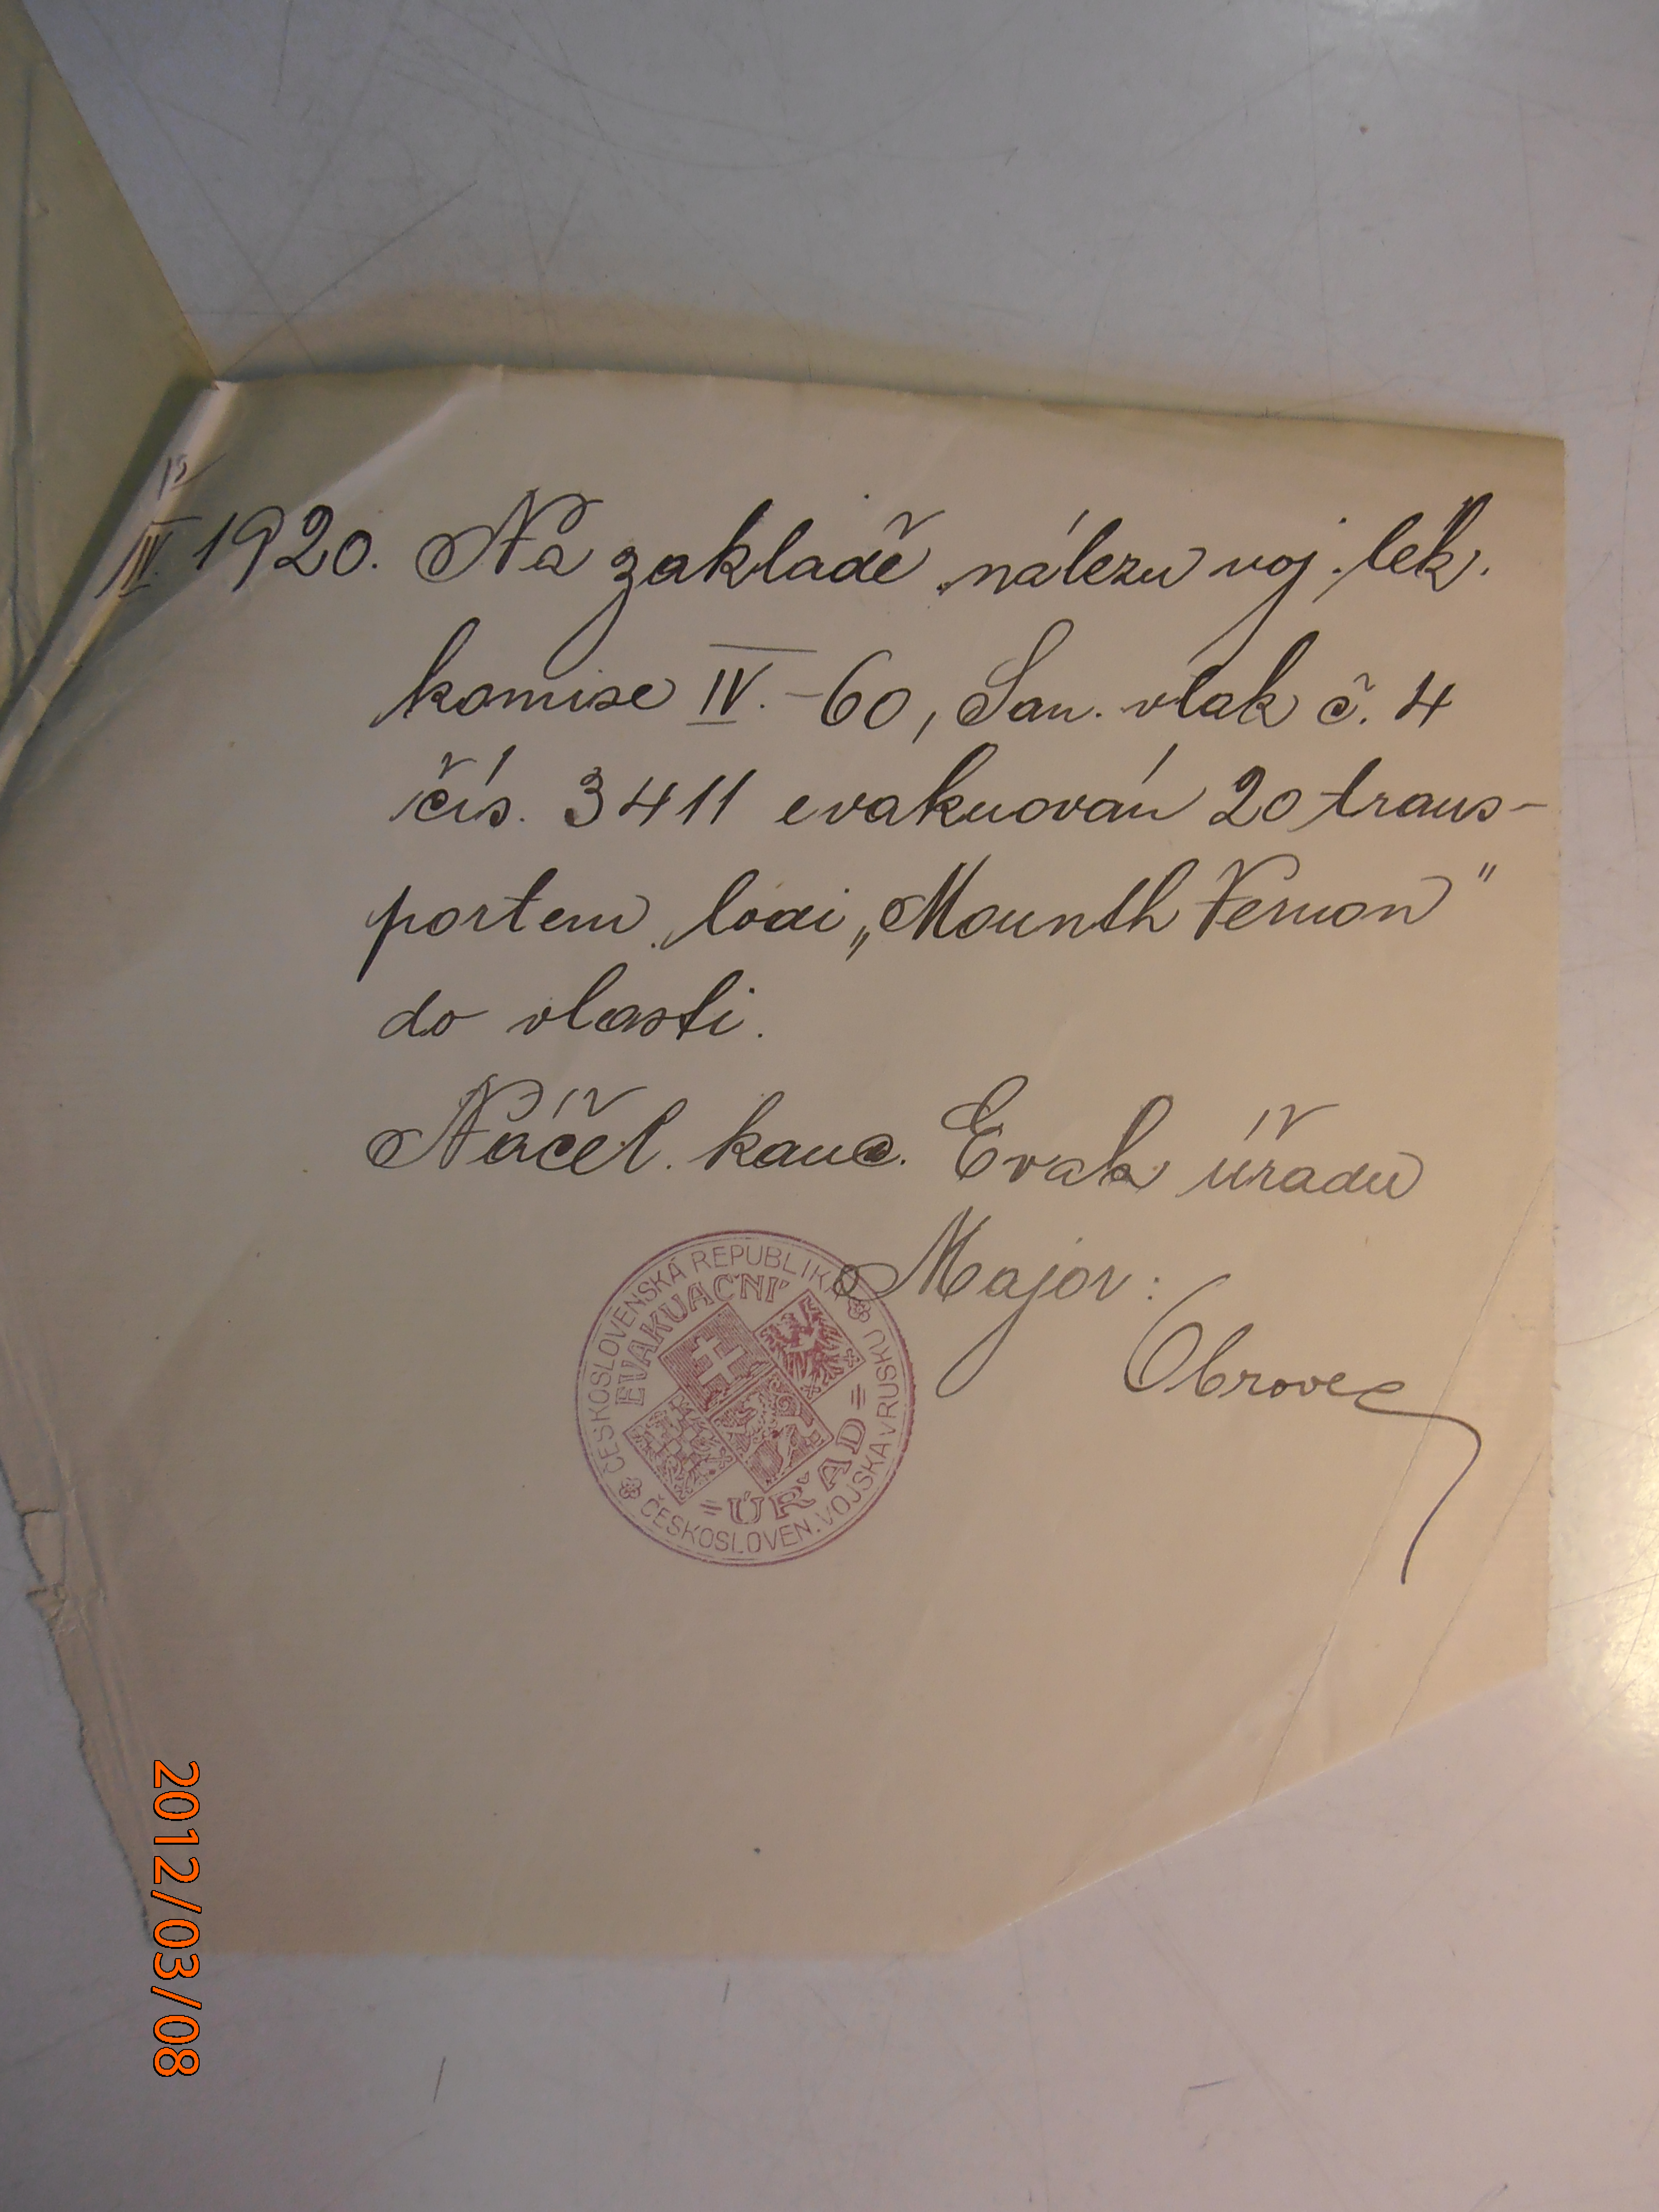 15
IV. 1920. Na zakladě nálezu voj. lék.
komise IV. - 60, San. vlak č. 4
čís. 3411 evakuován 20 trans-
portem lodi „Mounth Vernon"
do vlasti.
Náčel. kanc. Evak úřadu
Major:
Obrovec
ČESKOSLOVENSKÁ REPUBLIKA
EVAKUAČNÍ
=ÚŘAD=
ČESKOSLOVEN. VOJSKA V RUSKU
2012/03/08